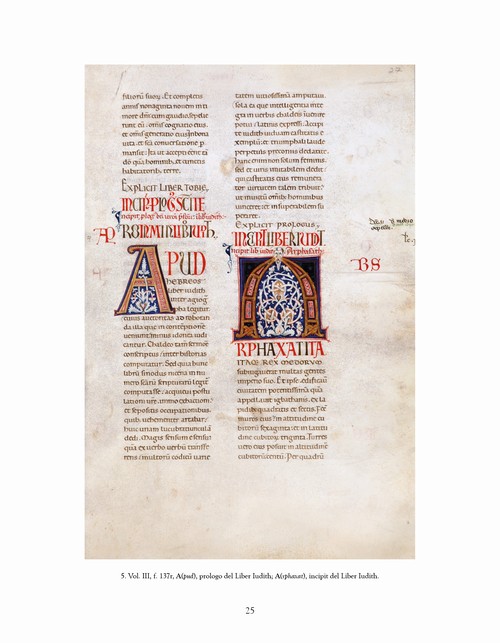 filiorū suorū. Et completis
annis nonaginta novem in ti
more dn̄i cum gaudio sepelie
runt eū. omnis cognatio eius.
et om̄is generatio ei in bona
vita. et sc̄a conversatione p
mansit. ita ut accepti eēnt tā
dō quā hominib; et cunctis
habitatorib; terre.
EXPLICIT LIBER TOBIE,
hebreos
liber iudith
inter agiog
pha legitur.
cuius auctoritas ad roboran
da illa que in contēptione
veniunt. minus idonea iudi
catur. Chaldeo tam̄ sermone
conscriptus. inter historias
computatur. Sed quia hunc
librū sinodus nicena in nu
mero sc̄arū scripturarū legit̄
computasse. acquievi postu
lationi vr̄e. immo exactioni.
et sepositis occupationibus.
quib; vehementer artabar.
huic unam lucubratiunculā
dedi. Magis sensum e sensu
quā ex verbo verbū transfe
rens. multorū codicū varie
tatem viciosissimā amputavi.
sola ea que intelligentia inte
gra in verbis chaldeis invenire
potui. latinis expressi. Accipi
te iudith viduam castitatis e
xemplū. et triumphali laude
perpetuis preconiis declarate.
Hanc enim non solum feminis.
sed et viris imitabilem dedit.
qui castitatis eius remunera
tor. virtutem talem tribuit.
ut invictū omnib; hominibus
vinceret. et insuperabilem su
peraret.
EXPLICIT PROLOGUS,
INCIPIT LIBER IUDIT
RPHAXAT ITA
ITAQ; REX MEDORUM
subiugaverat multas gentes
imperio suo. Et ipse edificavit
civitatem potentissimā quā
appellavit egbathanis. ex la
pidib; quadratis et sectis. Fec̄
muros eius in altitudine cu
bitorū sexaginta. et in latitu
dine cubitorū triginta. Turres
vero eius posuit in altitudinē
cubitorū centū. Per quadrū
5. Vol. III, f. 137r, A(pud), prologo del Liber Iudith; A(rphaxat), incipit del Liber Iudith.
25